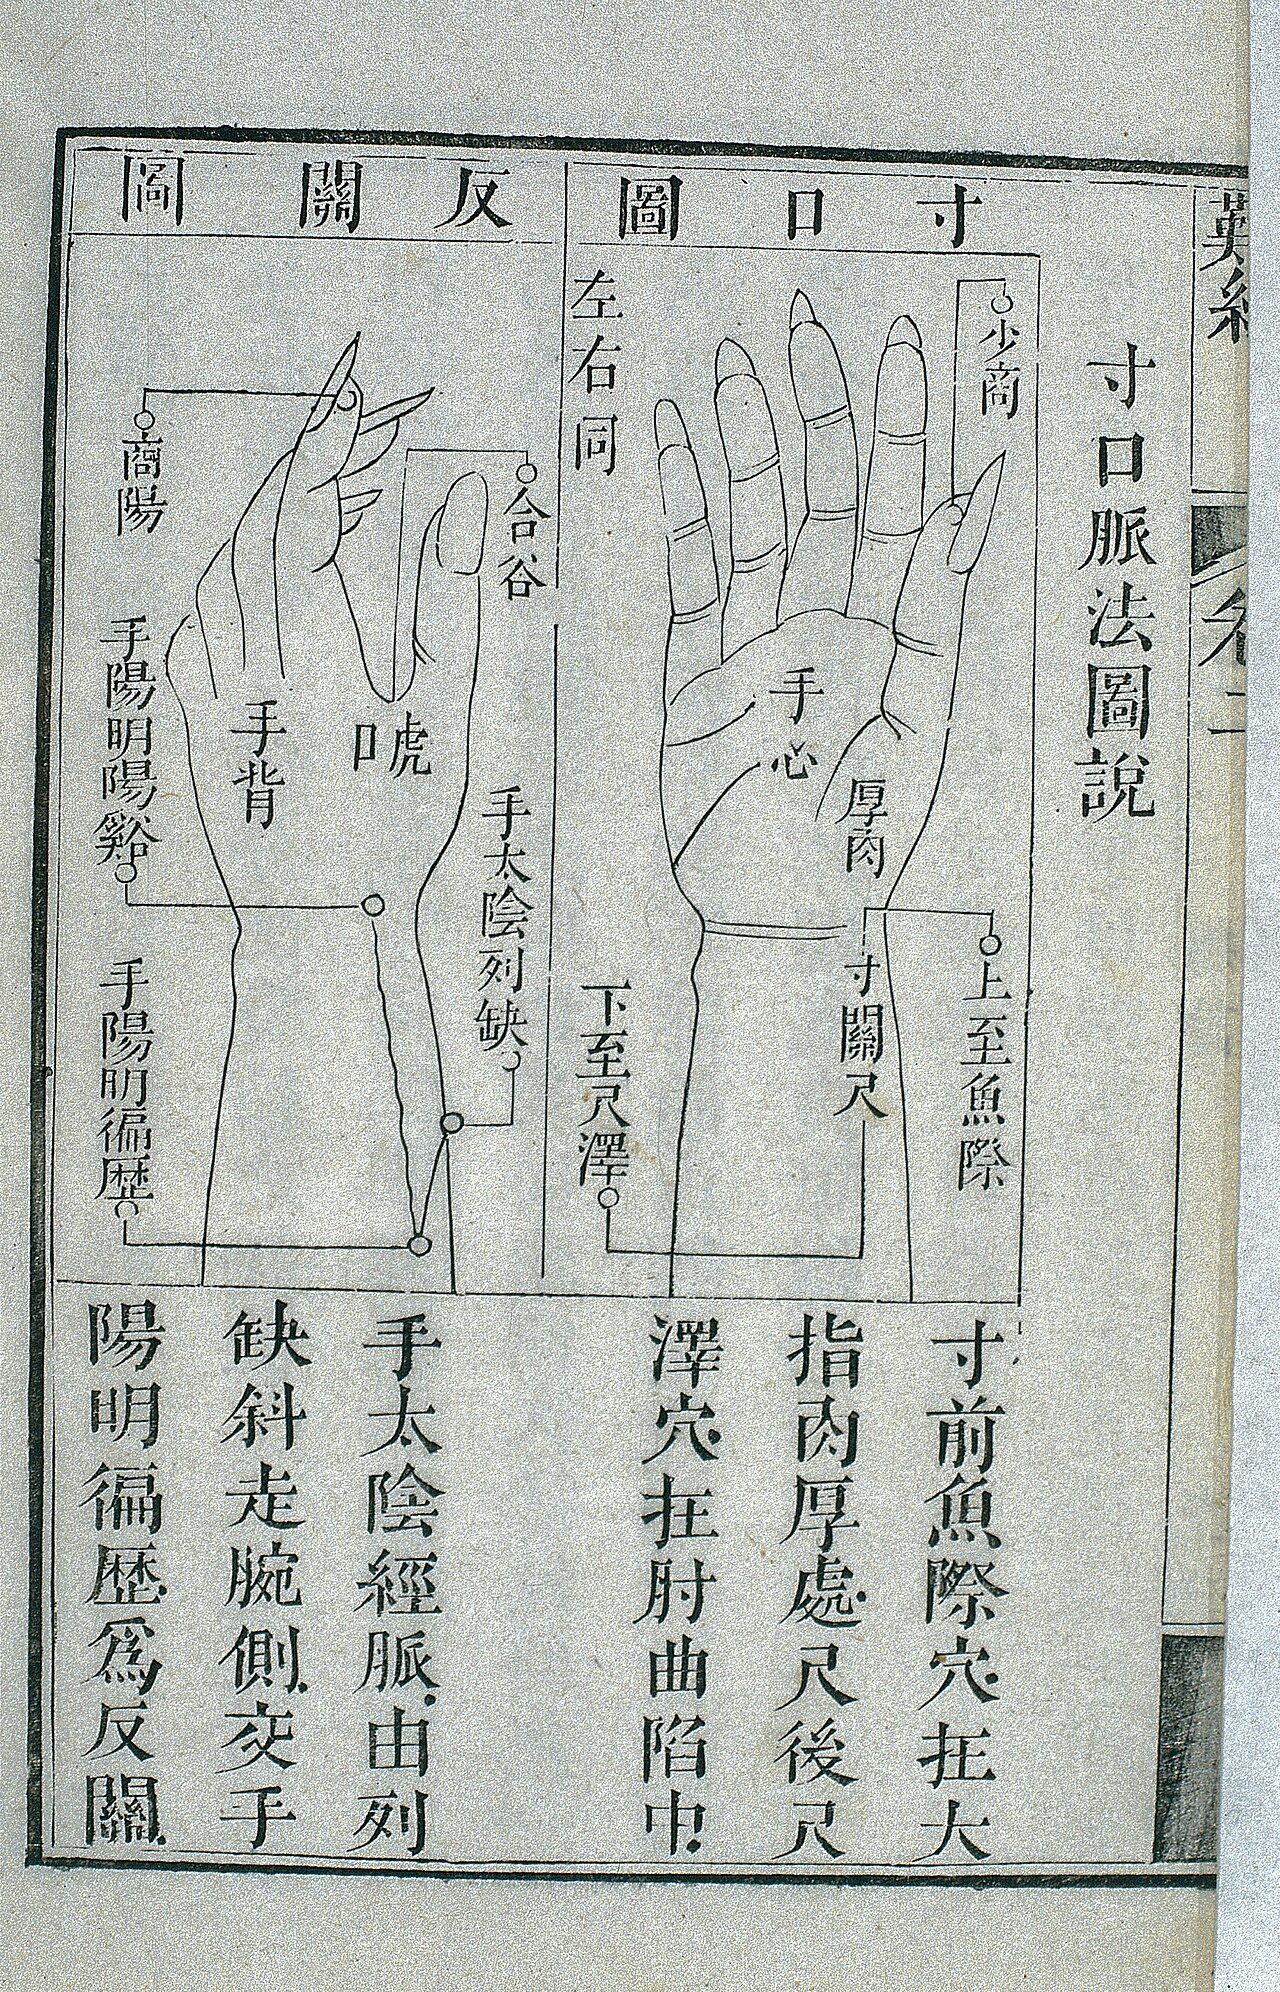 難經
卷一
寸口脈法圖說
寸口圖
少商
左右同
手心
厚肉
寸關尺
上至魚際
下至尺澤
寸前魚際穴在大
指肉厚處尺後尺
澤穴在肘曲陷中
反關圖
合谷
商陽
虎口
手背
手太陰列缺
手陽明陽谿
手陽明徧歷
手太陰經脈由列
缺斜走腕側交手
陽明徧歷為反關